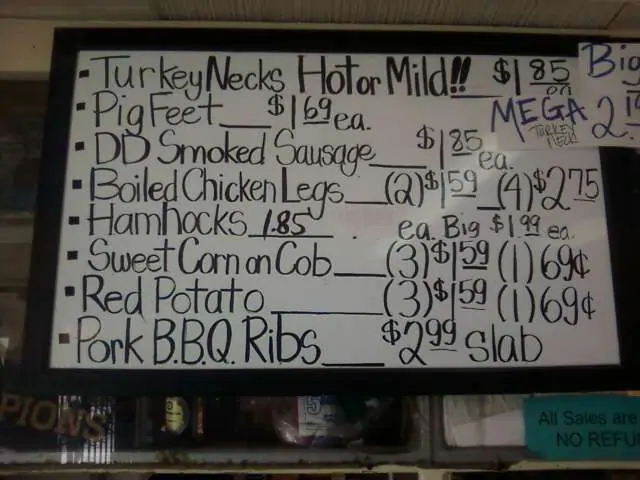 • Turkey Necks Hot or Mild!! $1.85 ea
Big
MEGA TURKEY NECK
• Pig Feet __ $1.69 ea.
• DD Smoked Sausage __ $1.85 ea.
• Boiled Chicken Legs __ (2) $1.59 _ (4) $2.75
• Hamhocks 1.85 ea. Big $1.99 ea.
• Sweet Corn on Cob __ (3) $1.59 (1) 69¢
• Red Potato ____ (3) $1.59 (1) 69¢
• Pork B.B.Q. Ribs __ $2.99 Slab
PIONS
All Sales are
NO REFU